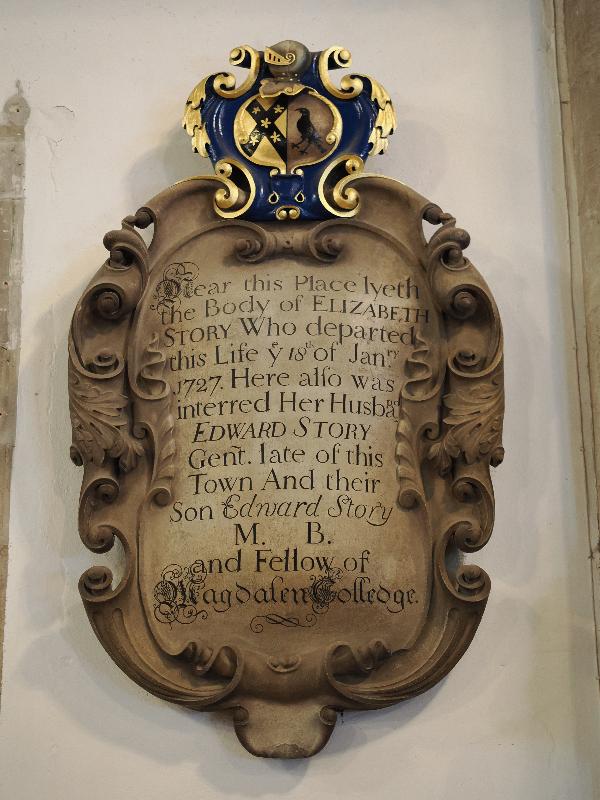 Near this Place lyeth
the Body of ELIZABETH
STORY Who departed
this Life yͤ 18ᵗʰ of Janʳʸ
1727. Here alſo was
interred Her Husbaⁿᵈ
EDWARD STORY
Gent. late of this
Town And their
Son Edward Story
M. B.
and Fellow of
Magdalen Colledge.